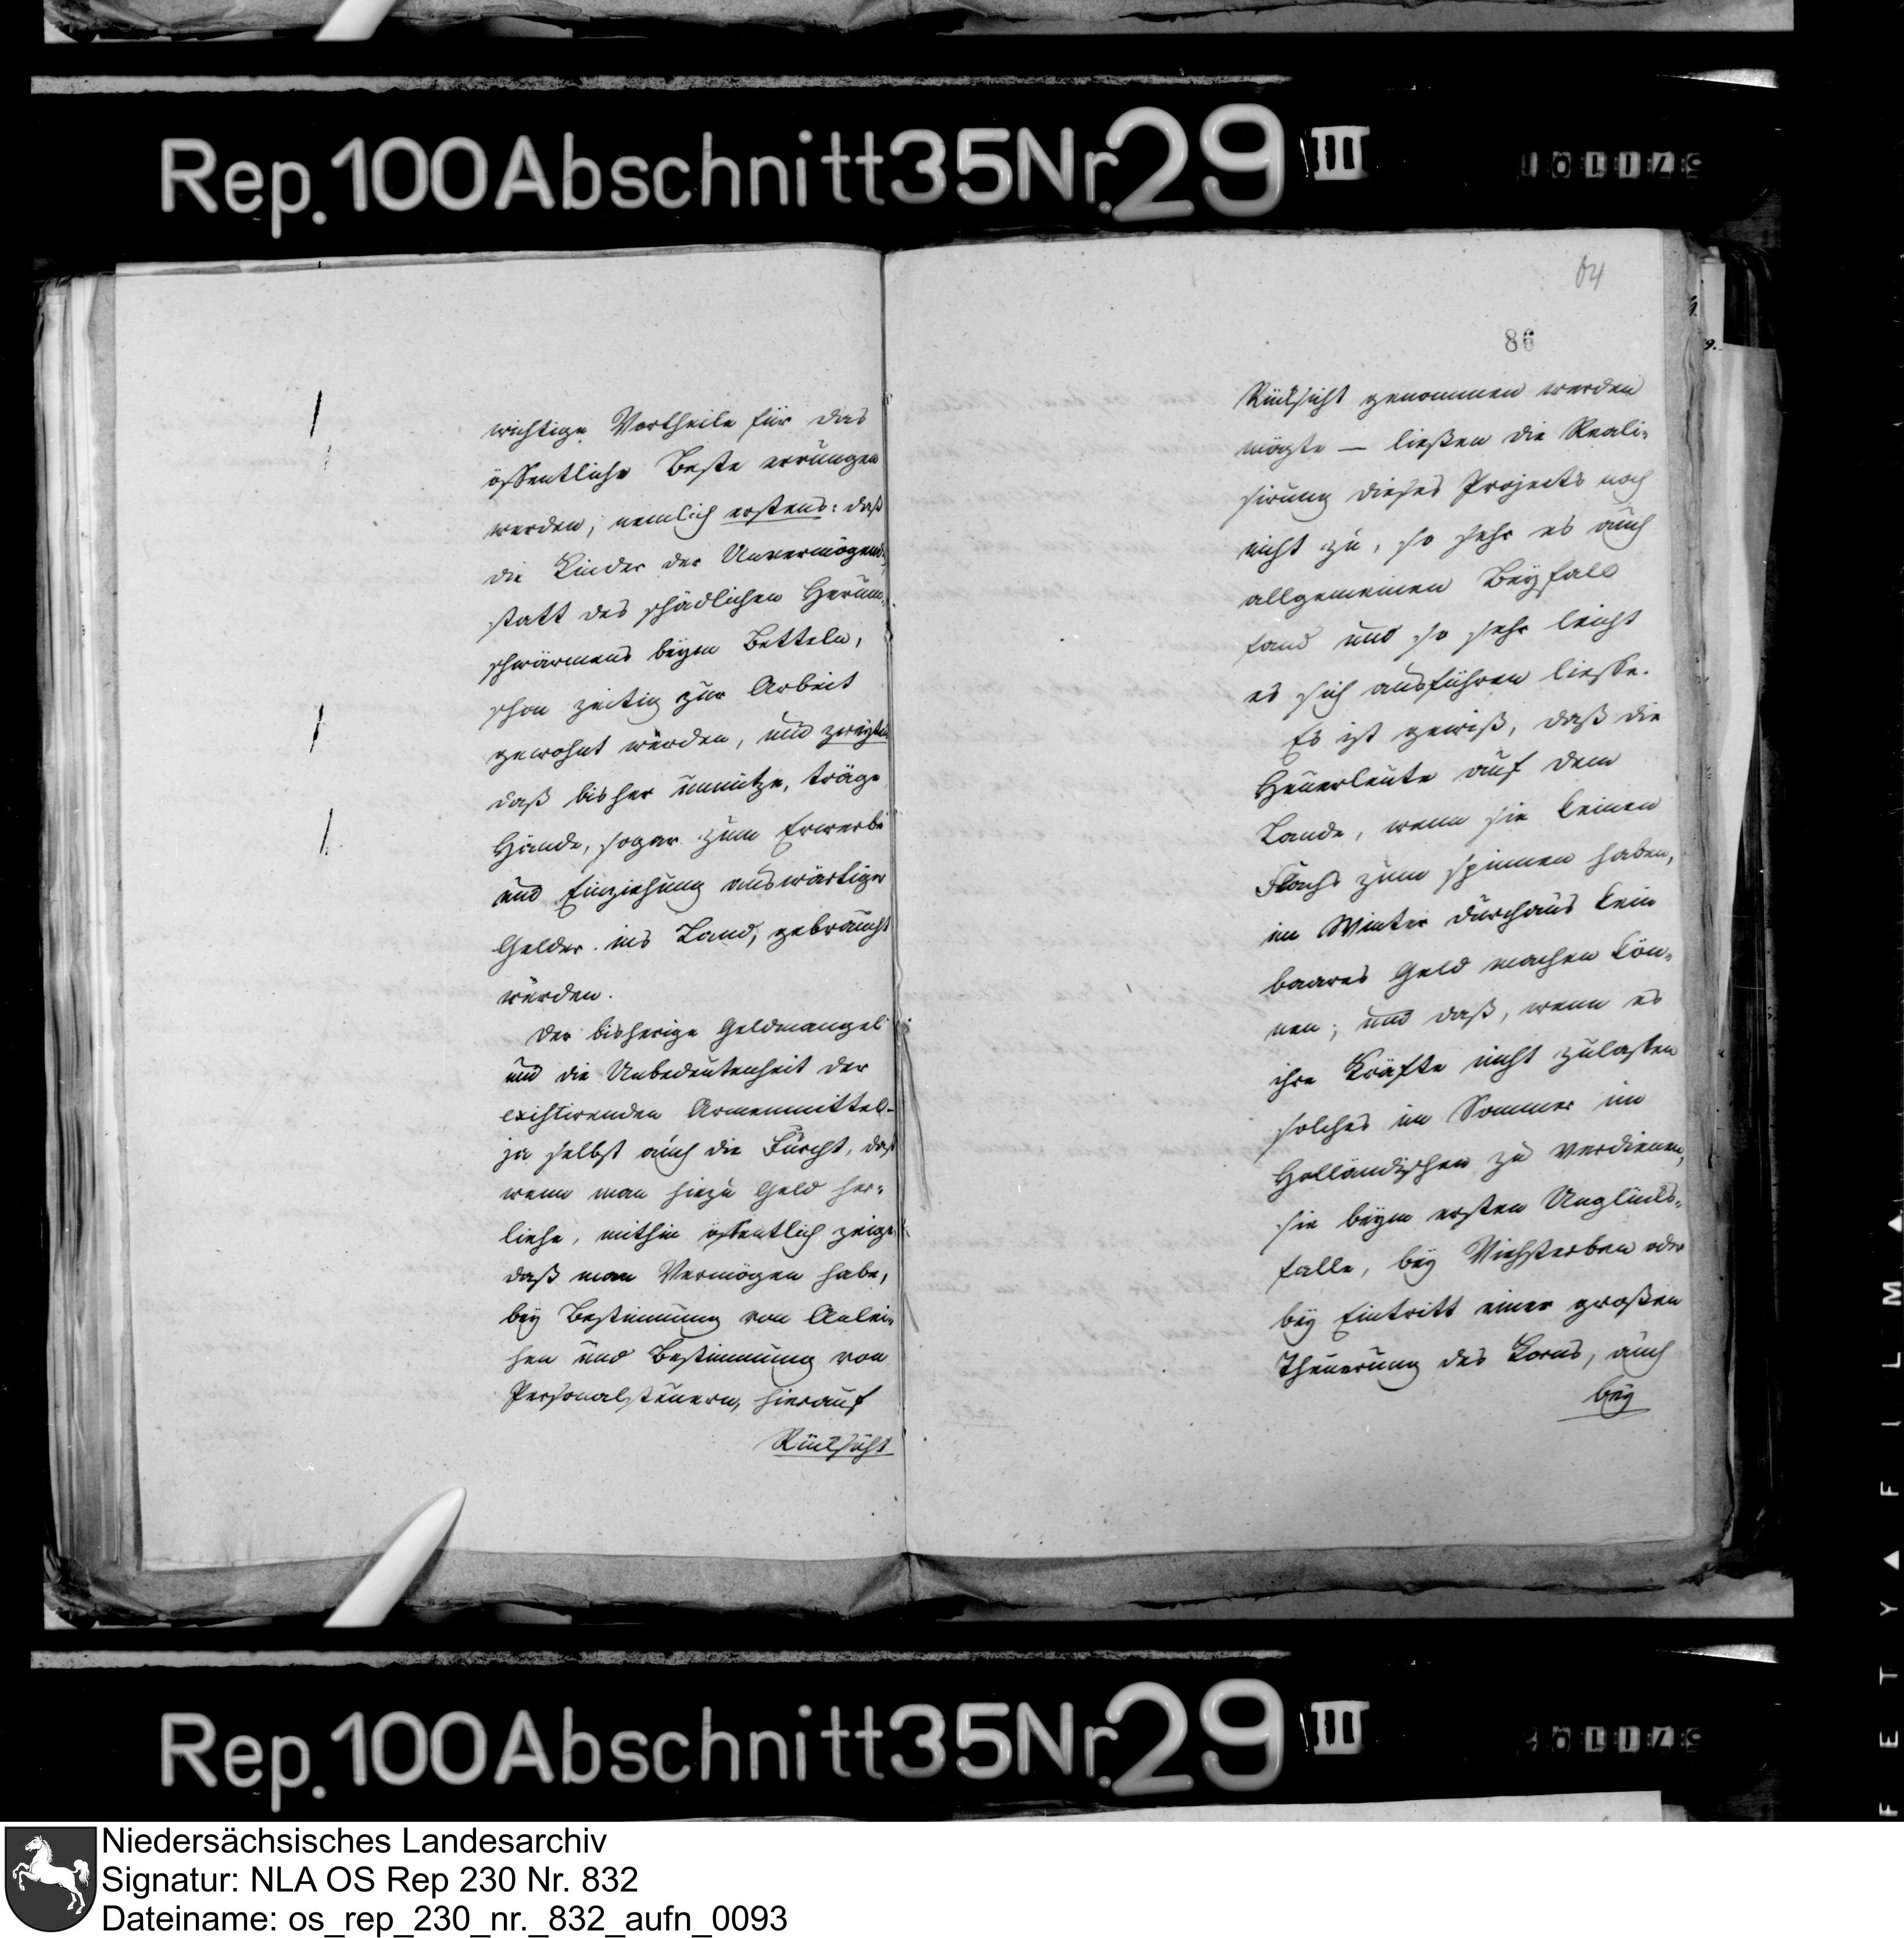 Rep. 100 Abschnitt 35 Nr. 29 III
wichtige Vortheile für das
öffentliche Beste errungen
werden; nemlich erstens: daß
die Kinder der Unvermögend.
statt des schädlichen Herum-
schwärmens beym Betteln,
schon zeitig zur Arbeit
gewohnt würden, und zweytens
daß bisher unnütze, träge
Hände, sogar zum Erwerbe
und Einziehung auswärtiger
Gelder ins Land, gebraucht
würden.
Der bisherige Geldmangel
und die Unbedeutenheit der
existirenden Armenmittel-
ja selbst auch die Furcht, daß
wenn man hiezu Geld her-
liehe, mithin öffentlich zeige
daß man Vermögen habe,
bey Bestimmung von Anlei-
hen und Bestimmung von
Personalsteuern, hierauf
Rücksicht
64
86
Rücksicht genommen werden
mögte — ließen die Reali-
sirung dieses Projects noch
nicht zu, so sehr es auch
allgemeinen Beyfall
fand und so sehr leicht
es sich ausführen liesse.
Es ist gewiß, daß die
Heuerleute auf dem
Lande, wenn sie keinen
Flachs zum spinnen haben,
im Winter durchaus kein
baares Geld machen kön-
nen; und daß, wenn es
ihre Kräfte nicht zulassen
solches im Sommer im
Holländischen zu verdienen,
sie beym ersten Unglücks-
falle, bey Viehsterben oder
bey Eintritt einer großen
Theuerung des Korns, auch
bey
Rep. 100 Abschnitt 35 Nr. 29 III
SAFETY FILM
Niedersächsisches Landesarchiv
Signatur: NLA OS Rep 230 Nr. 832
Dateiname: os_rep_230_nr._832_aufn_0093